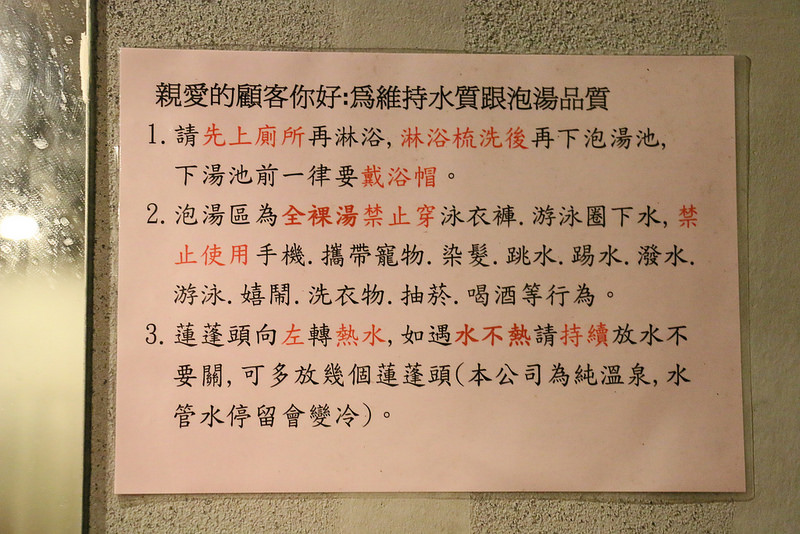 親愛的顧客你好:為維持水質跟泡湯品質
1. 請先上廁所再淋浴, 淋浴梳洗後再下泡湯池,
下湯池前一律要戴浴帽。
2. 泡湯區為全裸湯禁止穿泳衣褲. 游泳圈下水, 禁
止使用手機. 攜帶寵物. 染髮. 跳水. 踢水. 潑水.
游泳. 嬉鬧. 洗衣物. 抽菸. 喝酒等行為。
3. 蓮蓬頭向左轉熱水, 如遇水不熱請持續放水不
要關, 可多放幾個蓮蓬頭(本公司為純溫泉, 水
管水停留會變冷)。